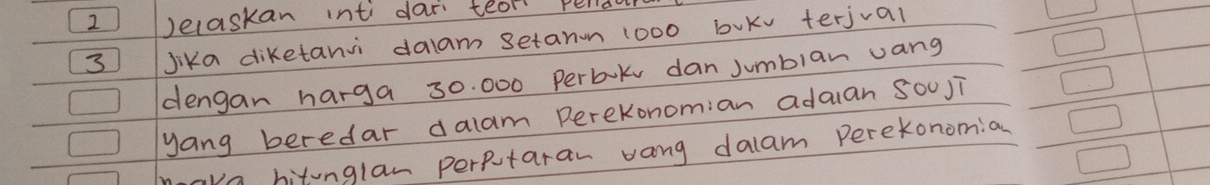 2 Jelaskan inti dari teori
3 Jika diketahui dalam setahun 1000 buku terjual
dengan harga 30.000 perbuku dan jumblah uang
yang beredar dalam perekonomian adalah 500 JT
maka hitunglah perputaran uang dalam perekonomian